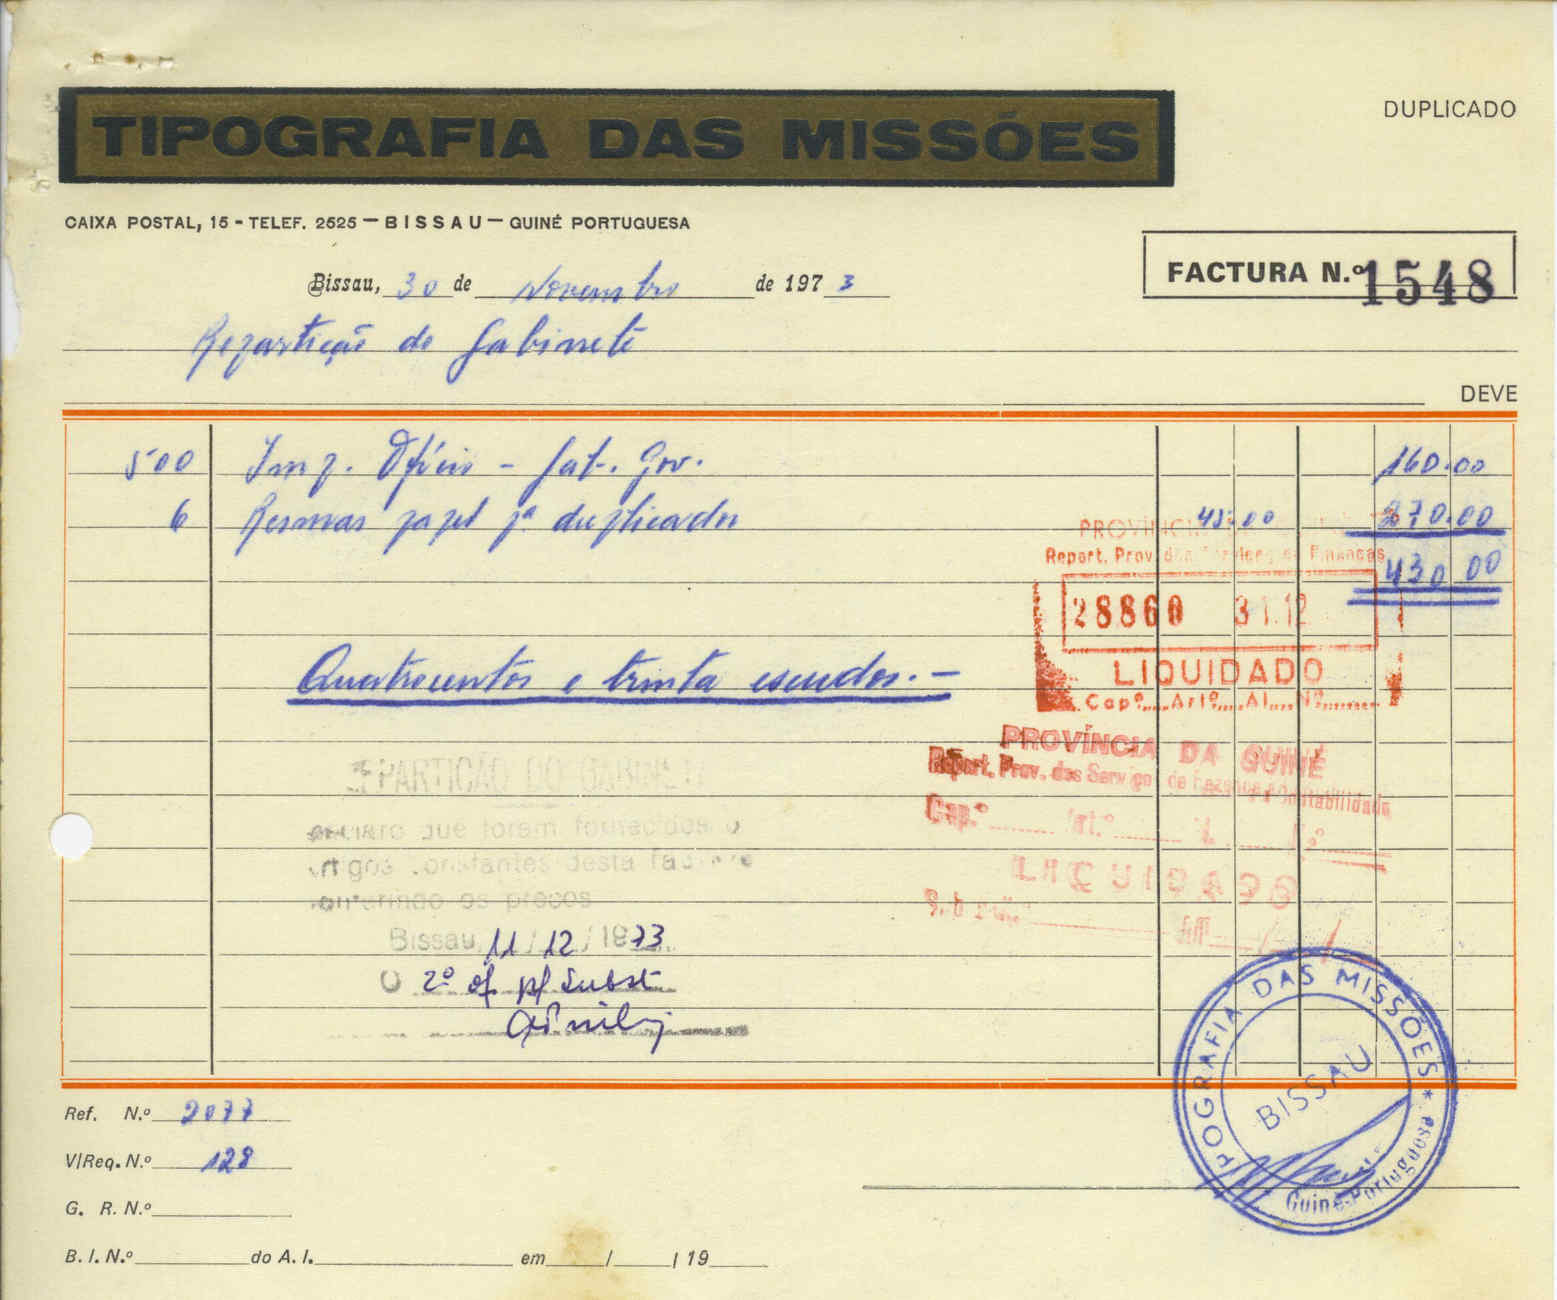 TIPOGRAFIA DAS MISSÕES
DUPLICADO
CAIXA POSTAL, 15 - TELEF. 2525 — BISSAU — GUINÉ PORTUGUESA
FACTURA N.º 1548
Bissau, 30 de Novembro de 1973
Repartição do Gabinete
DEVE
500 Imp. Ofício - Gab. Gov. 160.00
6 Resmas papel pª duplicador 45.00 270.00
430 00
PROVÍNCIA
Repart. Prov. dos Serviços de Finanças
28860 31.12
LIQUIDADO
Cap.º Artº Al. Nº
Quatrocentos e trinta escudos. -
PROVÍNCIA DA GUINÉ
Repart. Prov. dos Serviços de Fazenda e Contabilidade
Cap.º Art.º
LIQUIDADO
REPARTIÇÃO DO GABINETE
que foram fornecidos o
artigos constantes desta
os preços
Bissau, 11/12/1973
O 2º of. p/ Subst
TIPOGRAFIA DAS MISSÕES * Guiné Portuguesa
BISSAU
Ref. N.º 2077
V/Req. N.º 128
G. R. N.º
B. I. N.º do A. I. em / / 19